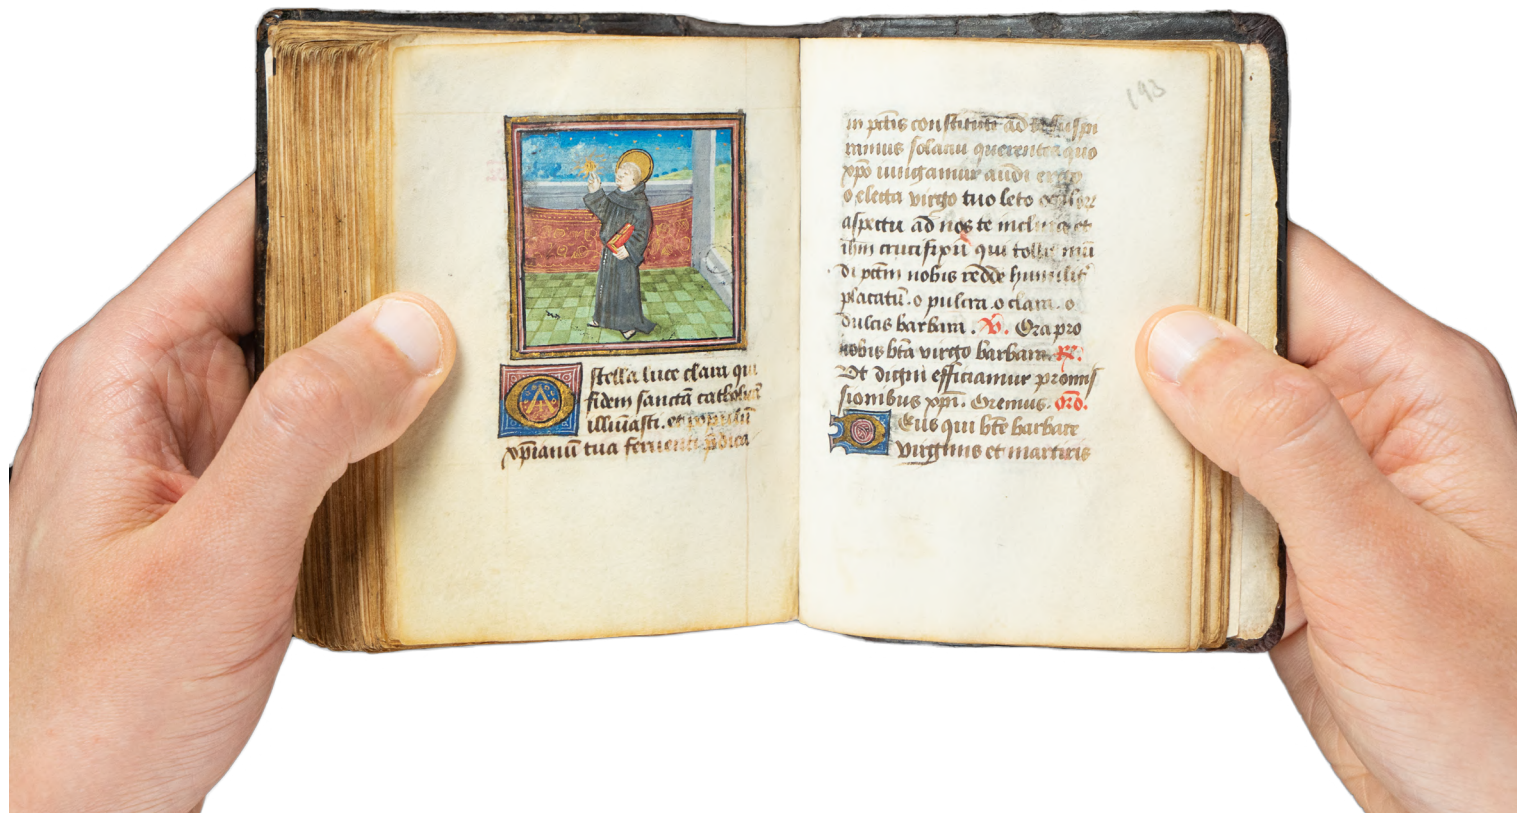 O stella luce clara qui
fidem sanctā catholicā
illūīasti. et populū
xp̄ianū tua feruenti p̄dica
193
in pctīs constituti ad
ramus solaciū querentes quo
xp̄o iungamur audi ergo
o electa virgo tuo leto
aspectu ad nos te inclina et
ihm crucifixū qui tollit mū
di pctm nobis redde humilit̄
placatū. o pulcra. o clara. o
dulcis barbara. V. Ora pro
nobis bta virgo barbara. R.
Ut digni efficiamur promis
sionibus xp̄i. Oremus. Orō.
Deus qui bte barbare
virginis et martiris